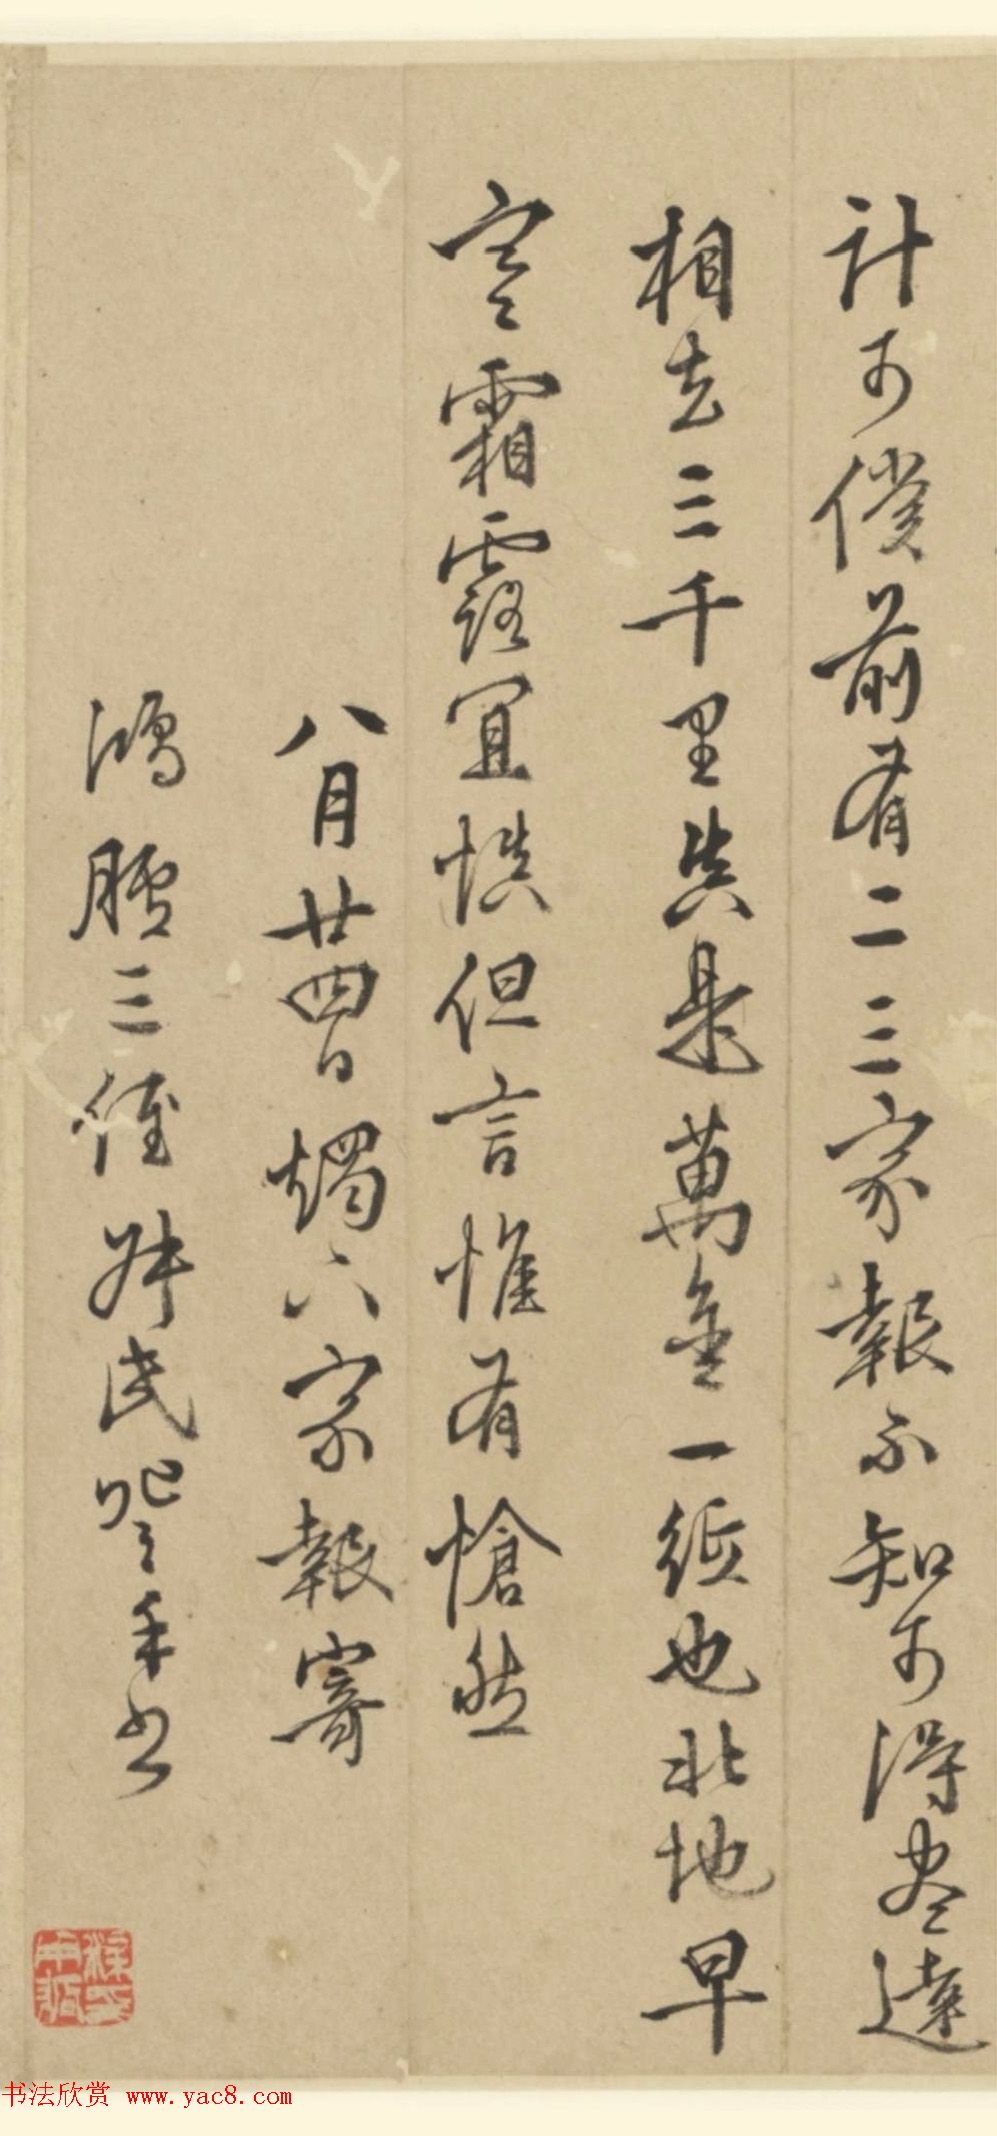 計可僕前有二三家報不知可得盡達
相去三千里真是萬金一紙也北地早
寒霜露宜慎但言惟有愴然
八月廿四日燭下家報寄
鴻臚三侄 民 手書
书法欣赏 www.yac8.com